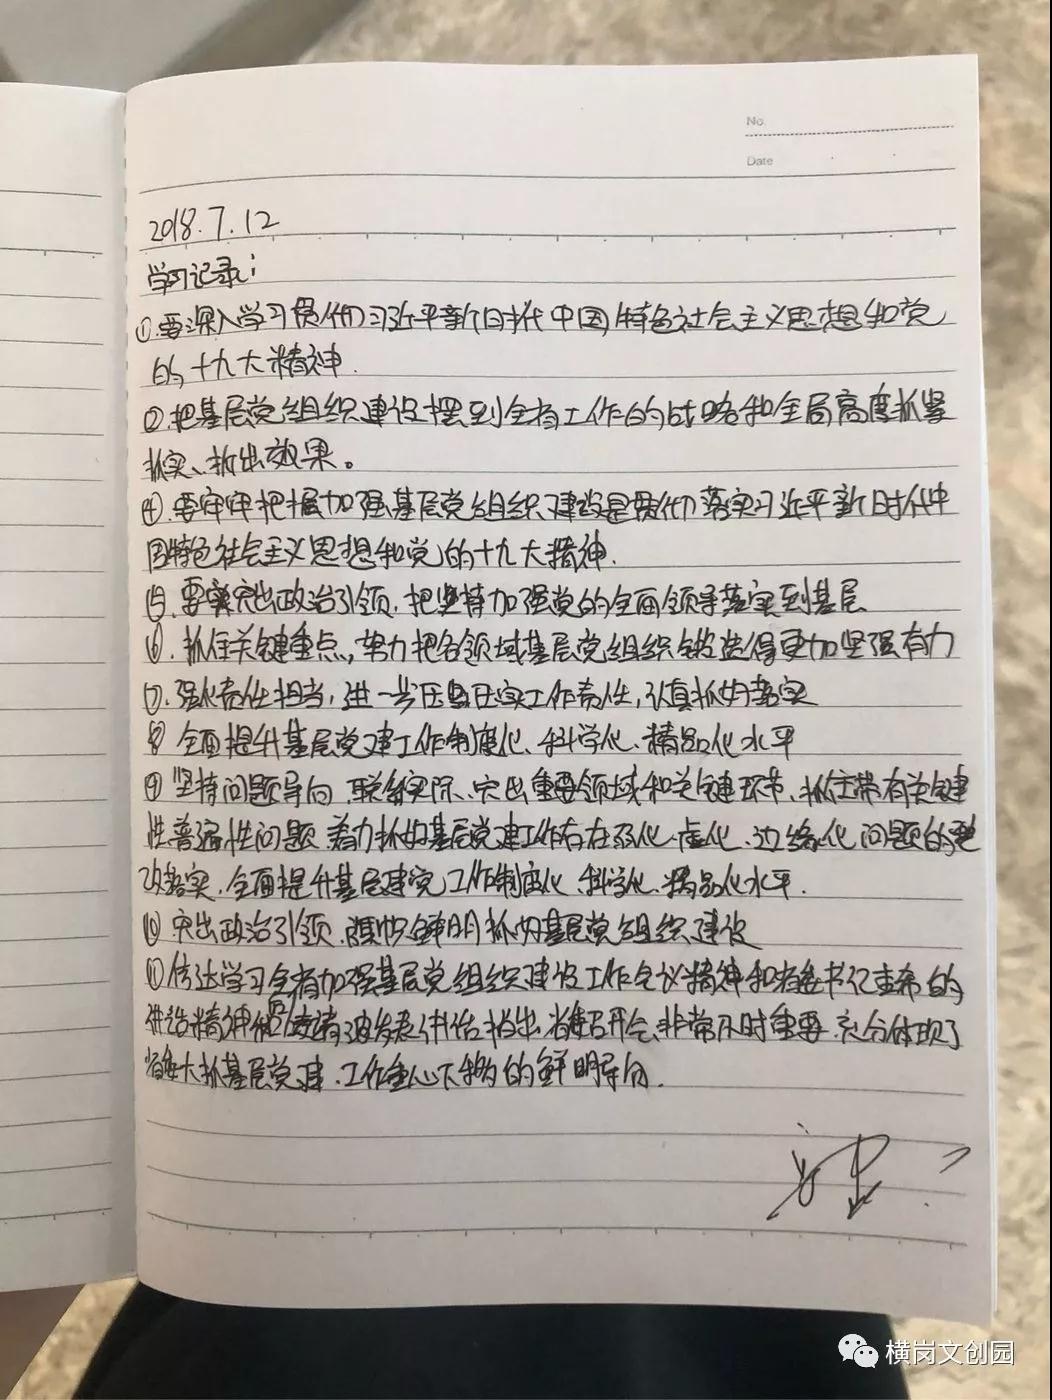 No.
Date
2018.7.12
学习记录:
①.要深入学习贯彻习近平新时代中国特色社会主义思想和党
的十九大精神.
②.把基层党组织建设摆到全省工作的战略和全局高度抓紧
抓实、抓出效果。
④.要牢牢把握加强基层党组织建设是贯彻落实习近平新时代中
国特色社会主义思想和党的十九大精神.
⑤.要突出政治引领,把坚持加强党的全面领导落实到基层
⑥.抓住关键重点,努力把各领域基层党组织锻造得更加坚强有力
⑦.强化责任担当,进一步压紧压实工作责任,认真抓好落实
⑧ 全面提升基层党建工作制度化、科学化、精品化水平
⑨ 坚持问题导向、联系实际、突出重要领域和关键环节、抓住带有关键
性普遍性问题 着力抓好基层党建工作存在弱化、虚化、边缘化问题的整
改落实.全面提升基层建党工作制度化、科学化、精品化水平.
⑩ 突出政治引领.旗帜鲜明抓好基层党组织建设
⑪ 传达学习全省加强基层党组织建设工作会议精神和省委书记李希的
讲话精神 发表讲话 指出 省委召开会、非常及时重要 充分体现了
省委大抓基层党建、工作重心下移的鲜明导向.
横岗文创园